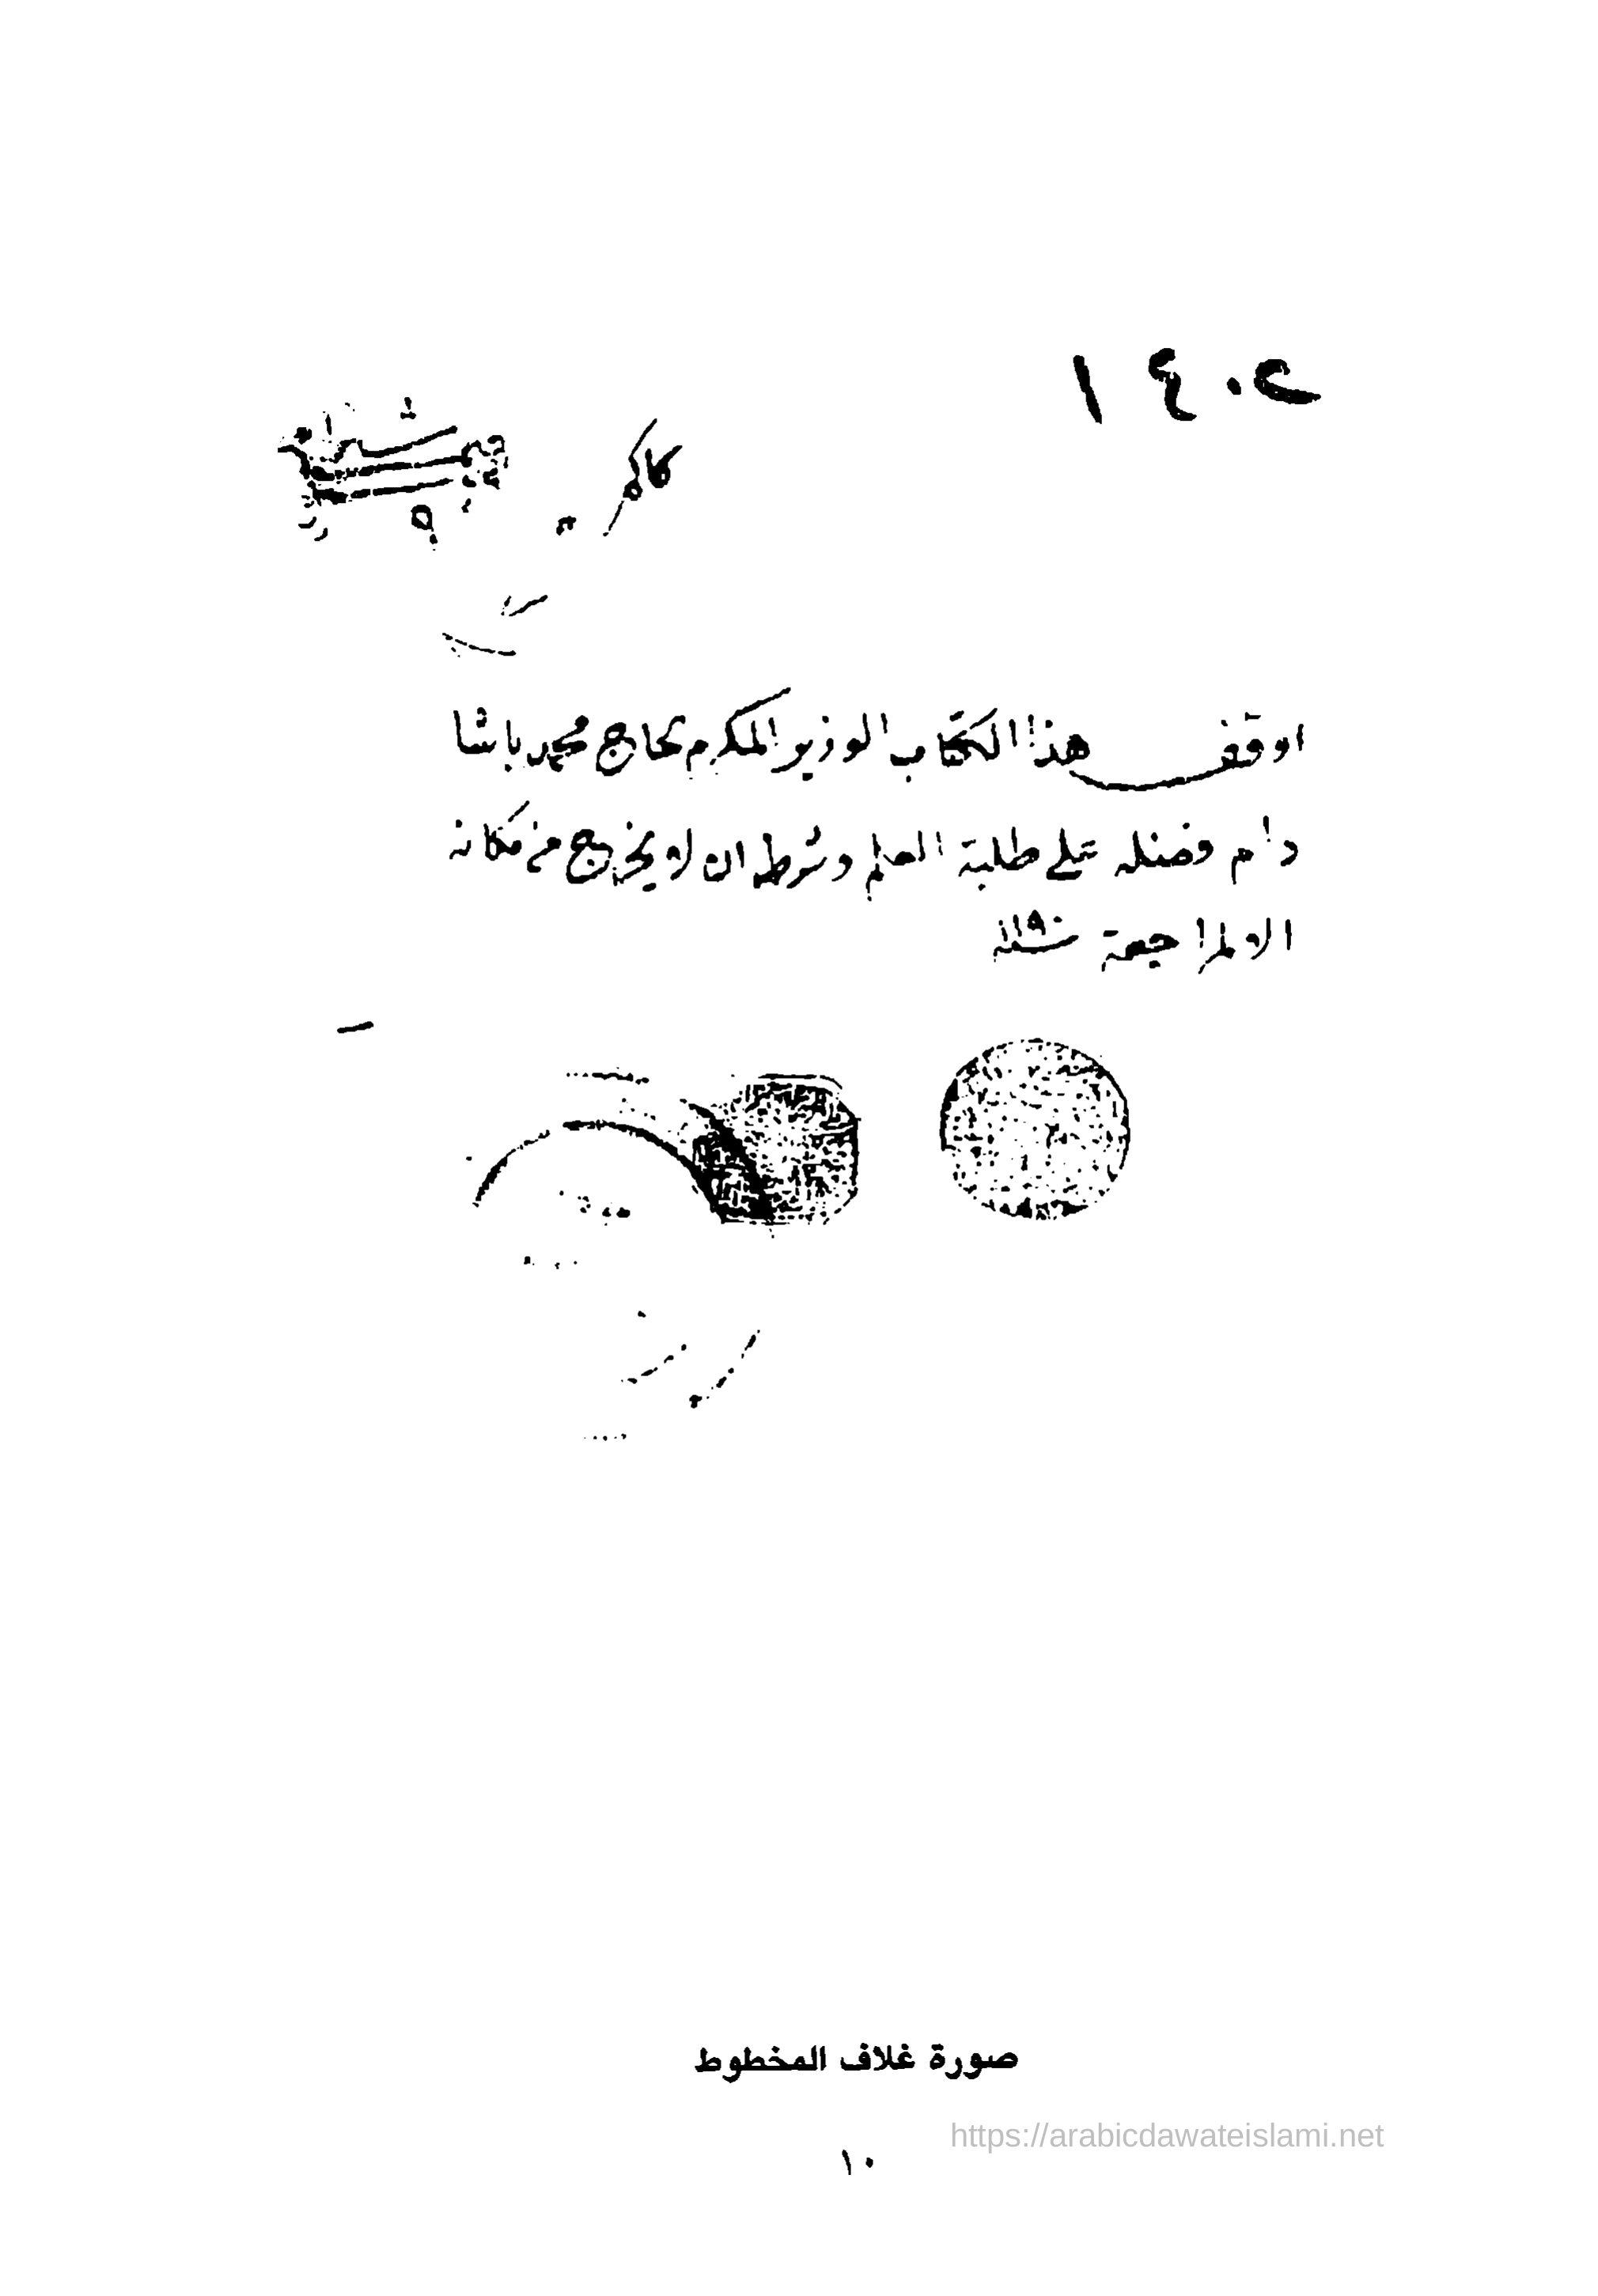 ١٤٠٤
اوقف هذا الكتاب الوزير المكرم الحاج محمد باشا
دام فضله على طلبة العلم وشرط ان لا يخرج من مكانه
الا لمراجعة سنة
صورة غلاف المخطوط
https://arabicdawateislami.net
١٠